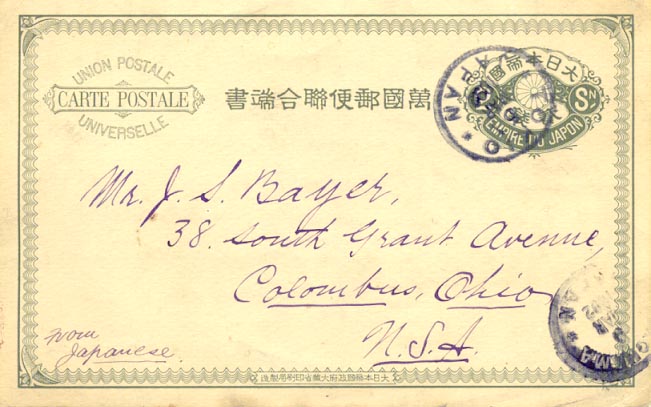 UNION POSTALE
CARTE POSTALE
UNIVERSELLE
書端合聯便郵國萬
大日本帝國
Sɴ
EMPIRE DU JAPON
JAPAN
Mr. J. S. Bayer,
38. South Grant Avenue,
Colombus, Ohio
U.S.A.
From
Japanese.
MAR
造製局刷印省藏大府政國帝本日大